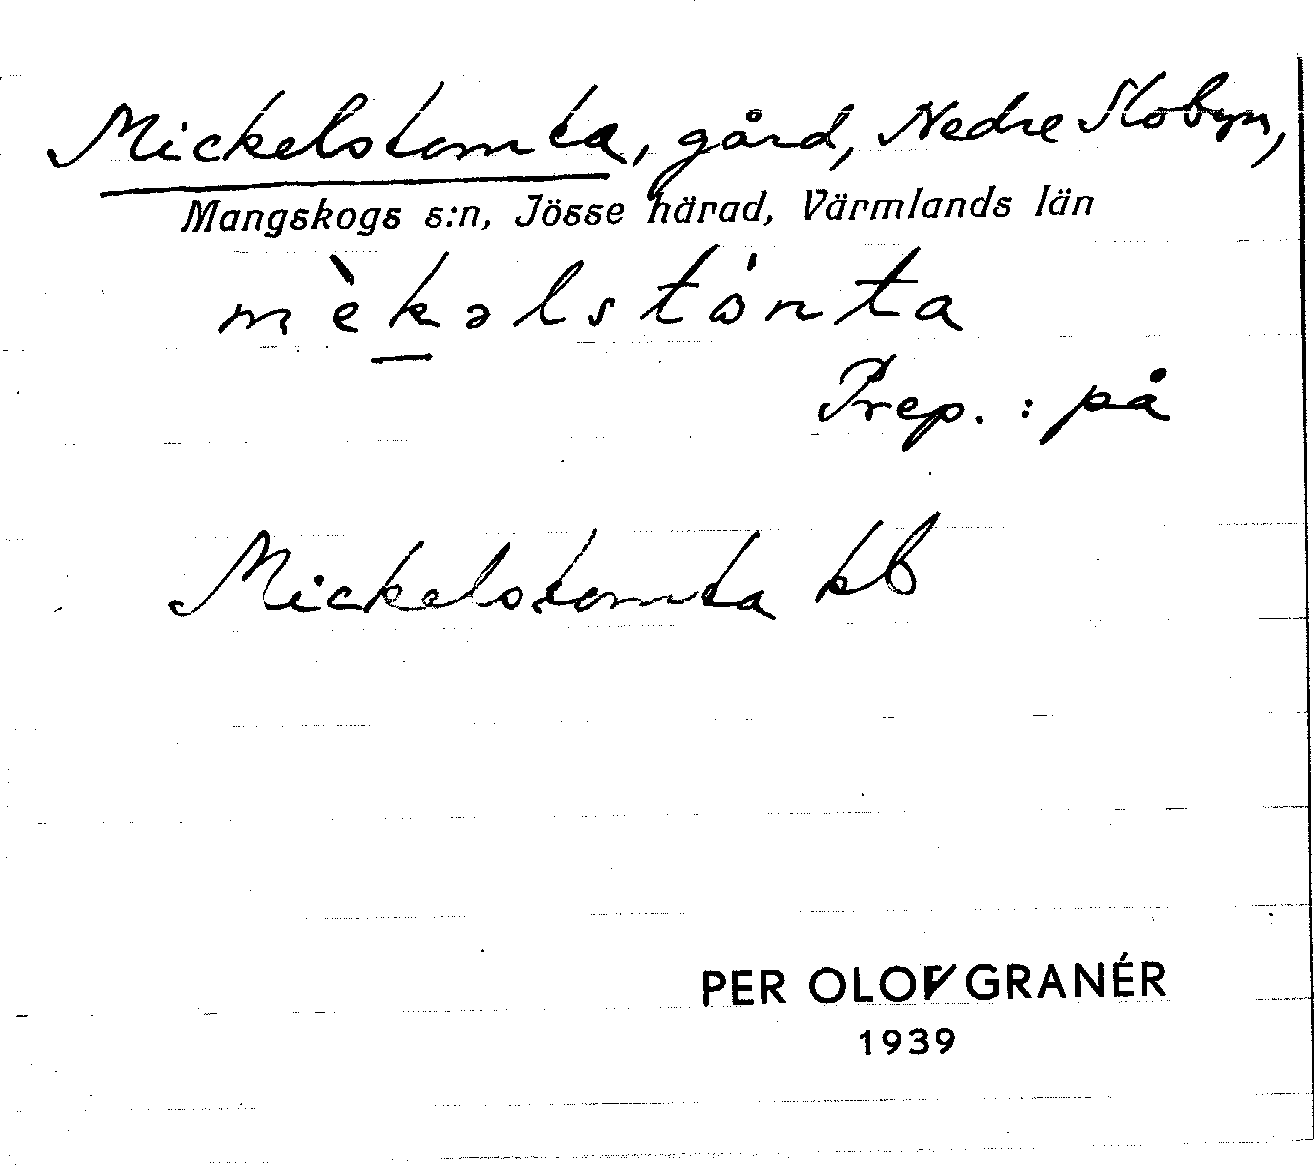 Mickelstomta, gård, Nedre Slobyn,
Mangskogs s:n, Jösse härad, Värmlands län
mèkəlstònta
Prep. : på
Mickelstomta kb
PER OLOF GRANÉR
1939